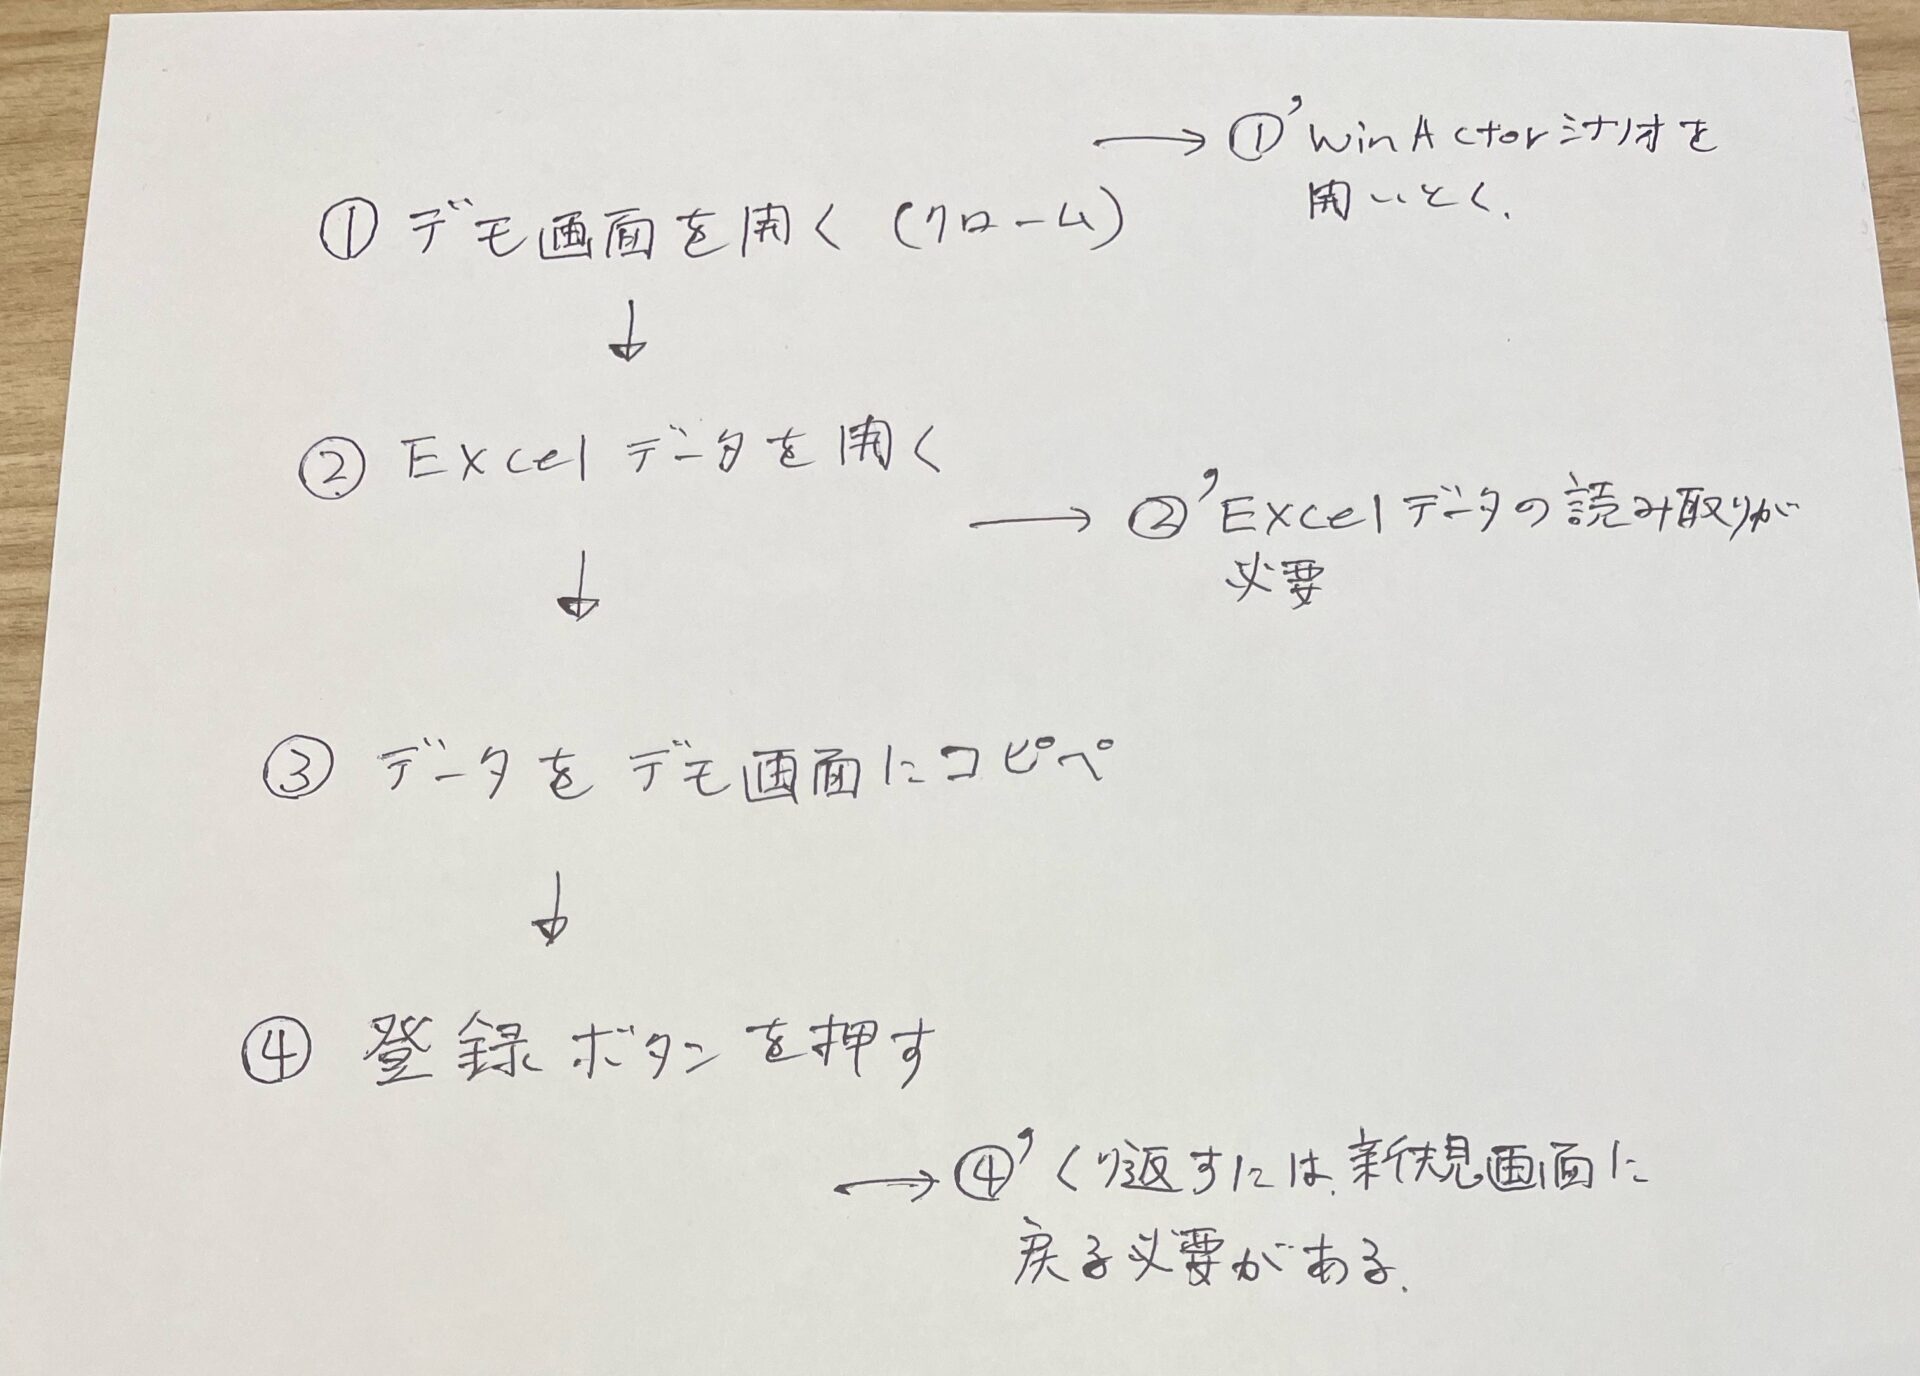 → ①' WinActorシナリオを
開いとく.
① デモ画面を開く (クローム)
↓
② Excel データを開く
→ ②' Excelデータの読み取りが
必要
↓
③ データを デモ画面にコピペ
↓
④ 登録ボタンを押す
→ ④' くり返すには、新規画面に
戻る必要がある.